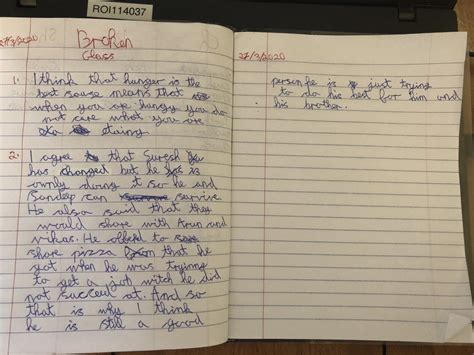 ROI114037
27/3/2020
Broken
Glass
1. I think that hunger is the
best sause means that
when you are hungy you do
not care what you are
stainy.
2. I agree that Suresh
has changed but he is
ownly doing it so he and
Sandeep can survive
He also said that they
would share with Arun and
vikas. He offerd to
share pizza that he
got when he was trying
to get a jot witch he did
not succeed at. And so
that is why I think
he is still a good
27/3/2020
person he is just trying
to do his best for him and
his brother.